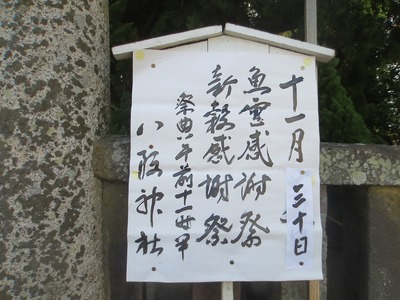 十一月三十日
魚霊感謝祭
新穀感謝祭
祭典 午前十一時
八阪神社